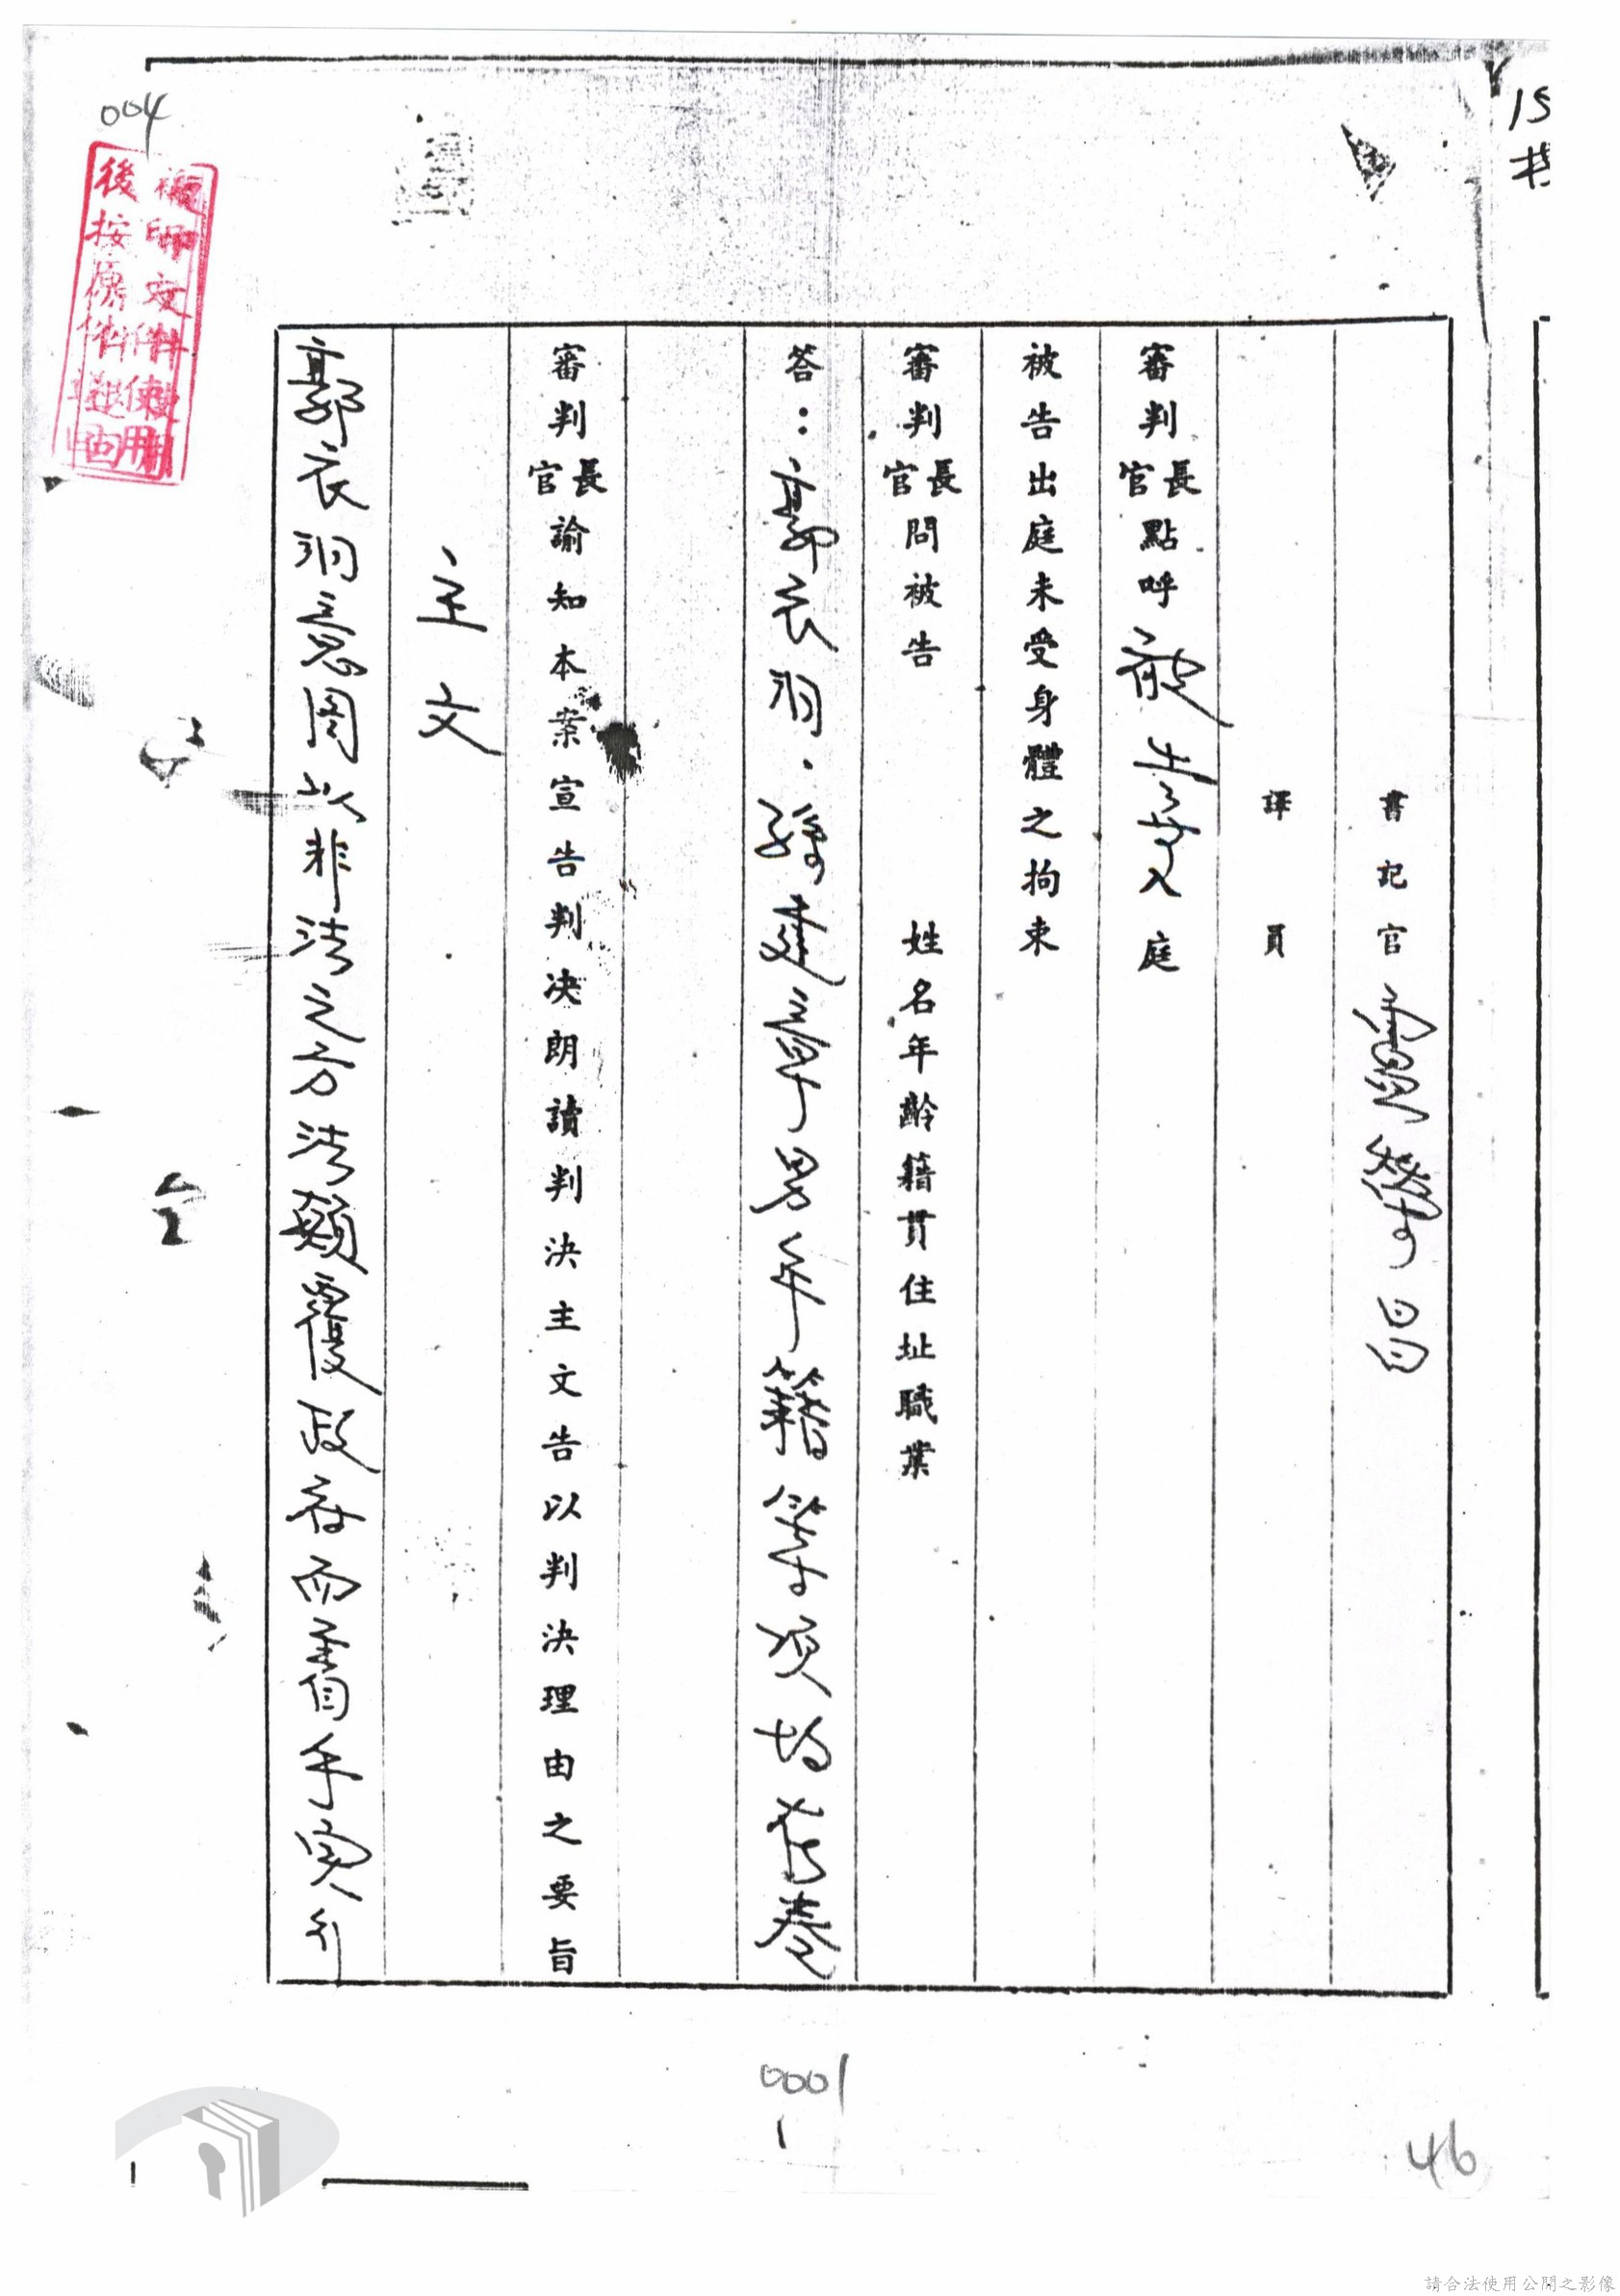 書記官 盧榮昌
譯員
審判官長點呼被告等入庭
被告出庭未受身體之拘束
審判官長問被告 姓名年齡籍貫住址職業
答：郭衣洞．孫建章男年籍等項均在卷
審判官長諭知本案宣告判決朗讀判決主文告以判決理由之要旨
主文
郭衣洞意圖以非法之方法顛覆政府而著手實行
004
複印文件使用
後按原件退回
0001
46
15
請合法使用公開之影像